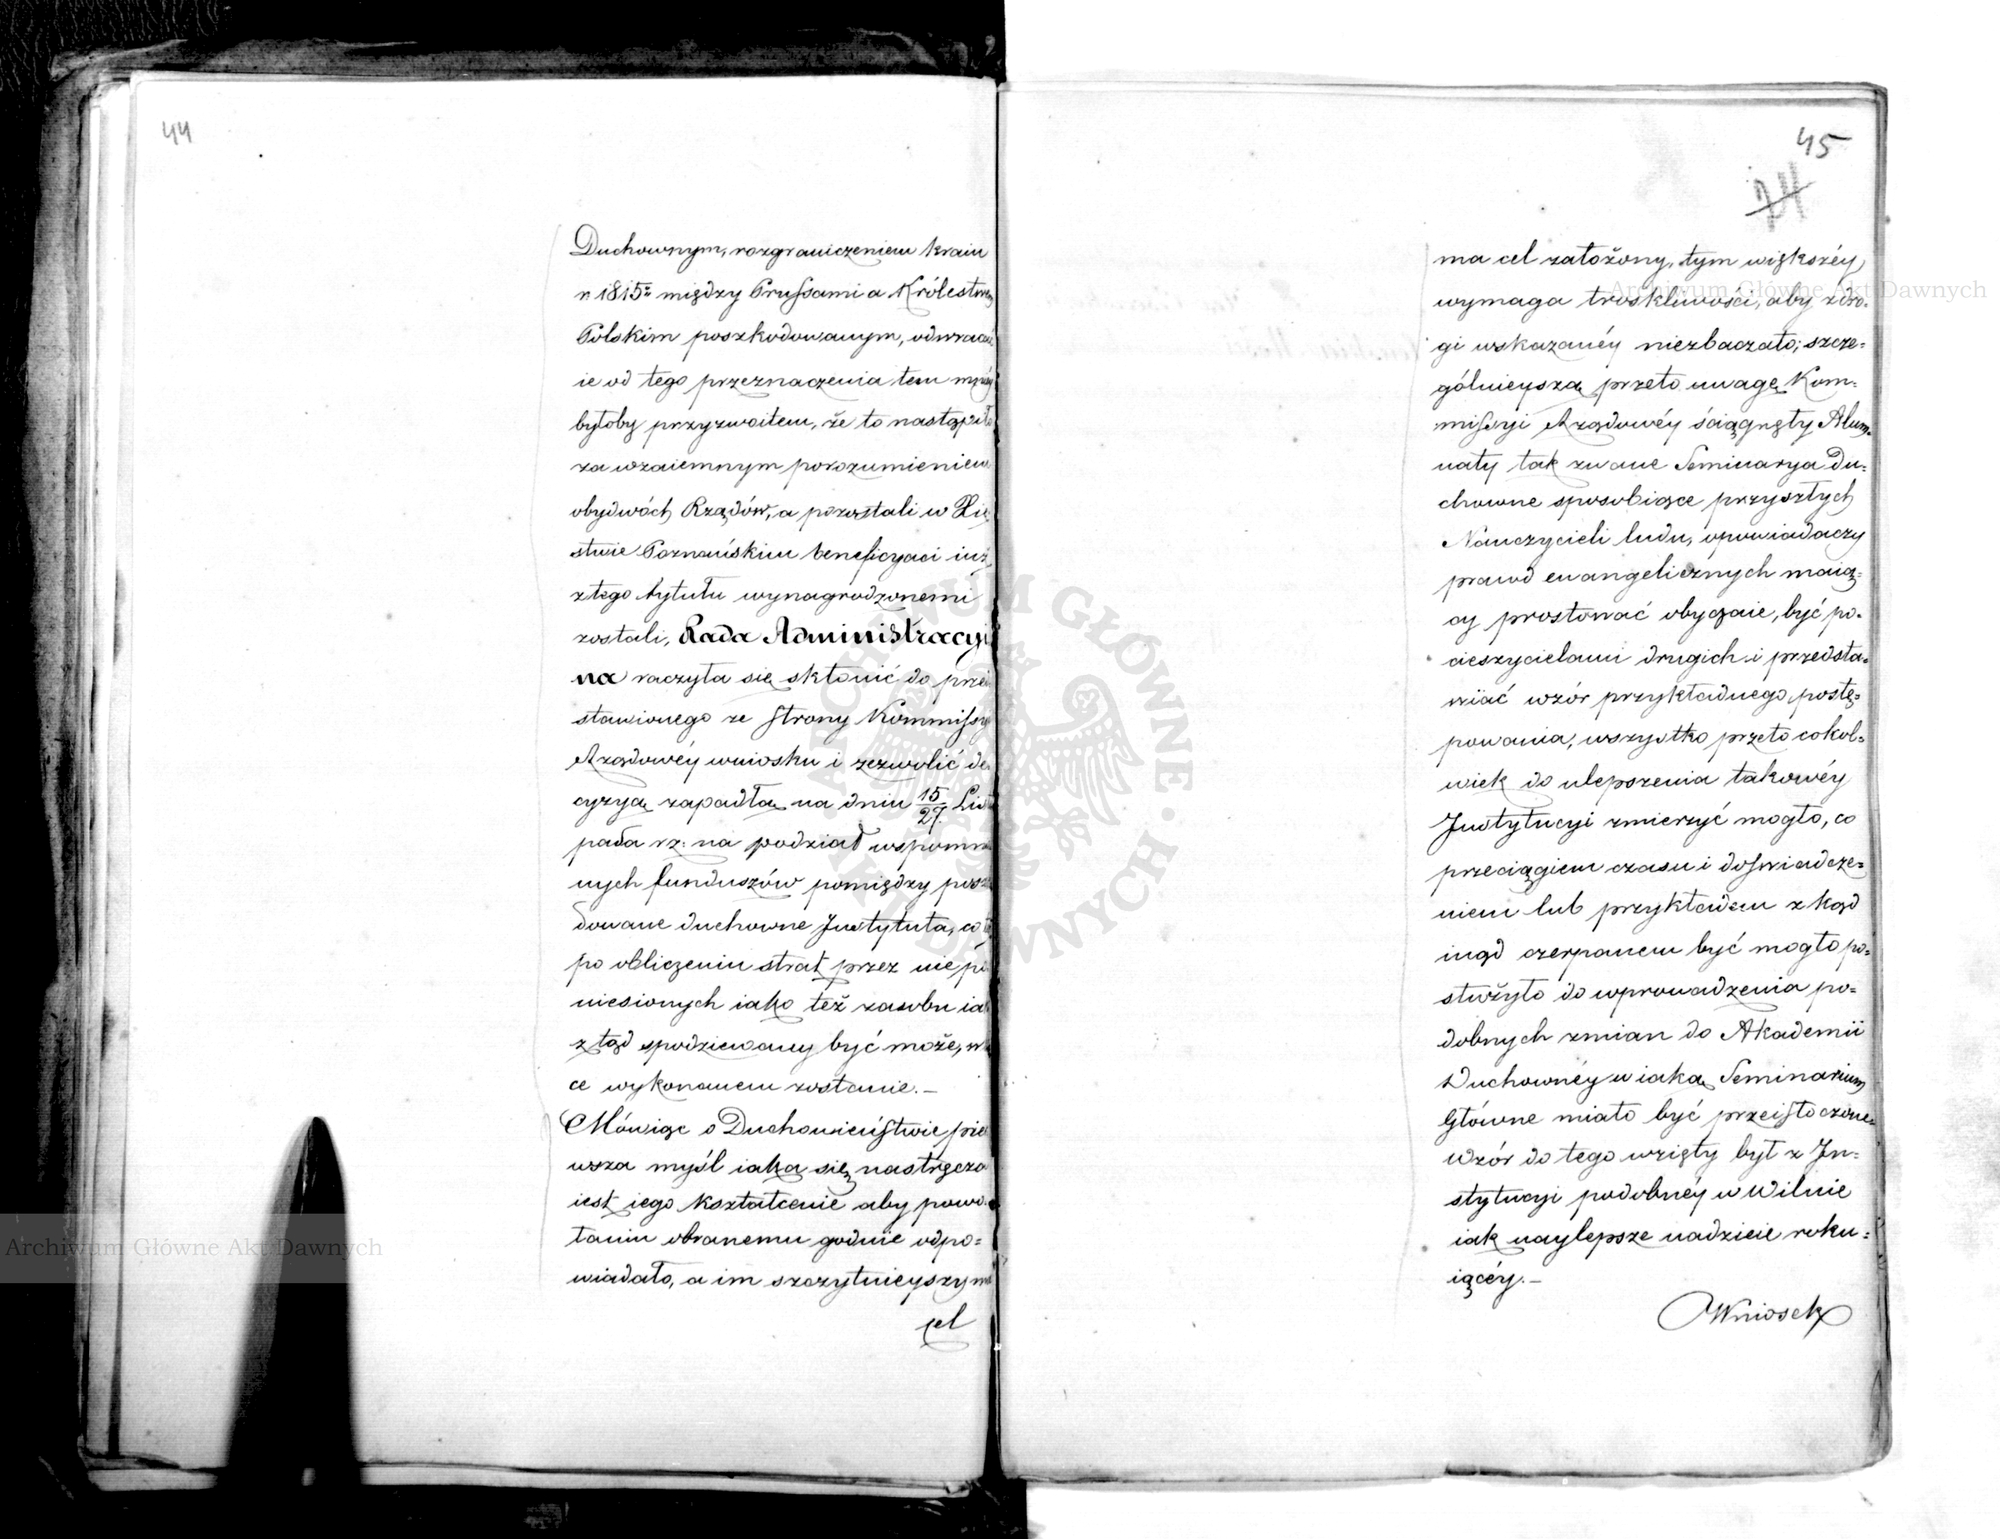 44
Duchownym, rozgraniczeniem kraiu
r 1815 między Prussami a Królestwem
Polskim poszkodowanym, odwraca
ie od tego przeznaczenia tem mniéy
byłoby przyzwoitem, że to nastąpiło
za wzaiemnym porozumieniem
obydwóch Rządów, a pozostali w Xię
stwie Poznańskim beneficyaci iuż
z tego tytułu wynagrodzonemi
zostali, Rada Administracyi
na raczyła się skłonić do przed
stawionego ze strony Kommissyi
Rządowéy wniosku i zezwolić de
cyzyą zapadłą na dniu 15/27 Listo
pada rz: na podział wspomnio
nych funduszów pomiędzy poszko
dowane duchowne Instytuta, co te
po obliczeniu strat przez nie po
niesionych iako też zasobu iaki
z tąd spodziewany być może, w
ce wykonanem zostanie.—
Mówiąc o Duchowieństwie pier
wsza myśl iaka się nastręcza
iest iego kształcenie aby powo
łaniu obranemu godnie odpo=
wiadało, a im szczytnieyszym
cel
45
24
ma cel założony, tym większéy
wymaga troskliwości, aby z dro-
gi wskazanéy niezbaczało; szcze=
gólnieyszą przeto uwagę Kom=
missyi Rządowéy ściągnęły Alum=
naty tak zwane Seminarya Du=
chowne sposobiące przyszłych
Nauczycieli ludu, opowiadaczy
prawd ewangelicznych maią=
cy prostować obyczaie, być po=
cieszycielami drugich i przedsta=
wiać wzór przykładnego postę=
powania, wszystko przeto cokol=
wiek do ulepszenia takowéy
Instytucyi zmierzyć mogło, co
przeciągiem czasu i doświadcze=
niem lub przykładem z kąd
inąd czerpanem być mogło po=
służyło do wprowadzenia po=
dobnych zmian do Akademii
Duchownéy w iaką Seminarium
Główne miało być przeistoczone.
Wzór do tego wzięty był z In=
stytucyi podobnéy w Wilnie
iak naylepsze nadzieie roku=
iącéy.—
Wniosek
Archiwum Główne Akt Dawnych
Archiwum Główne Akt Dawnych
ARCHIWUM GŁÓWNE AKT DAWNYCH